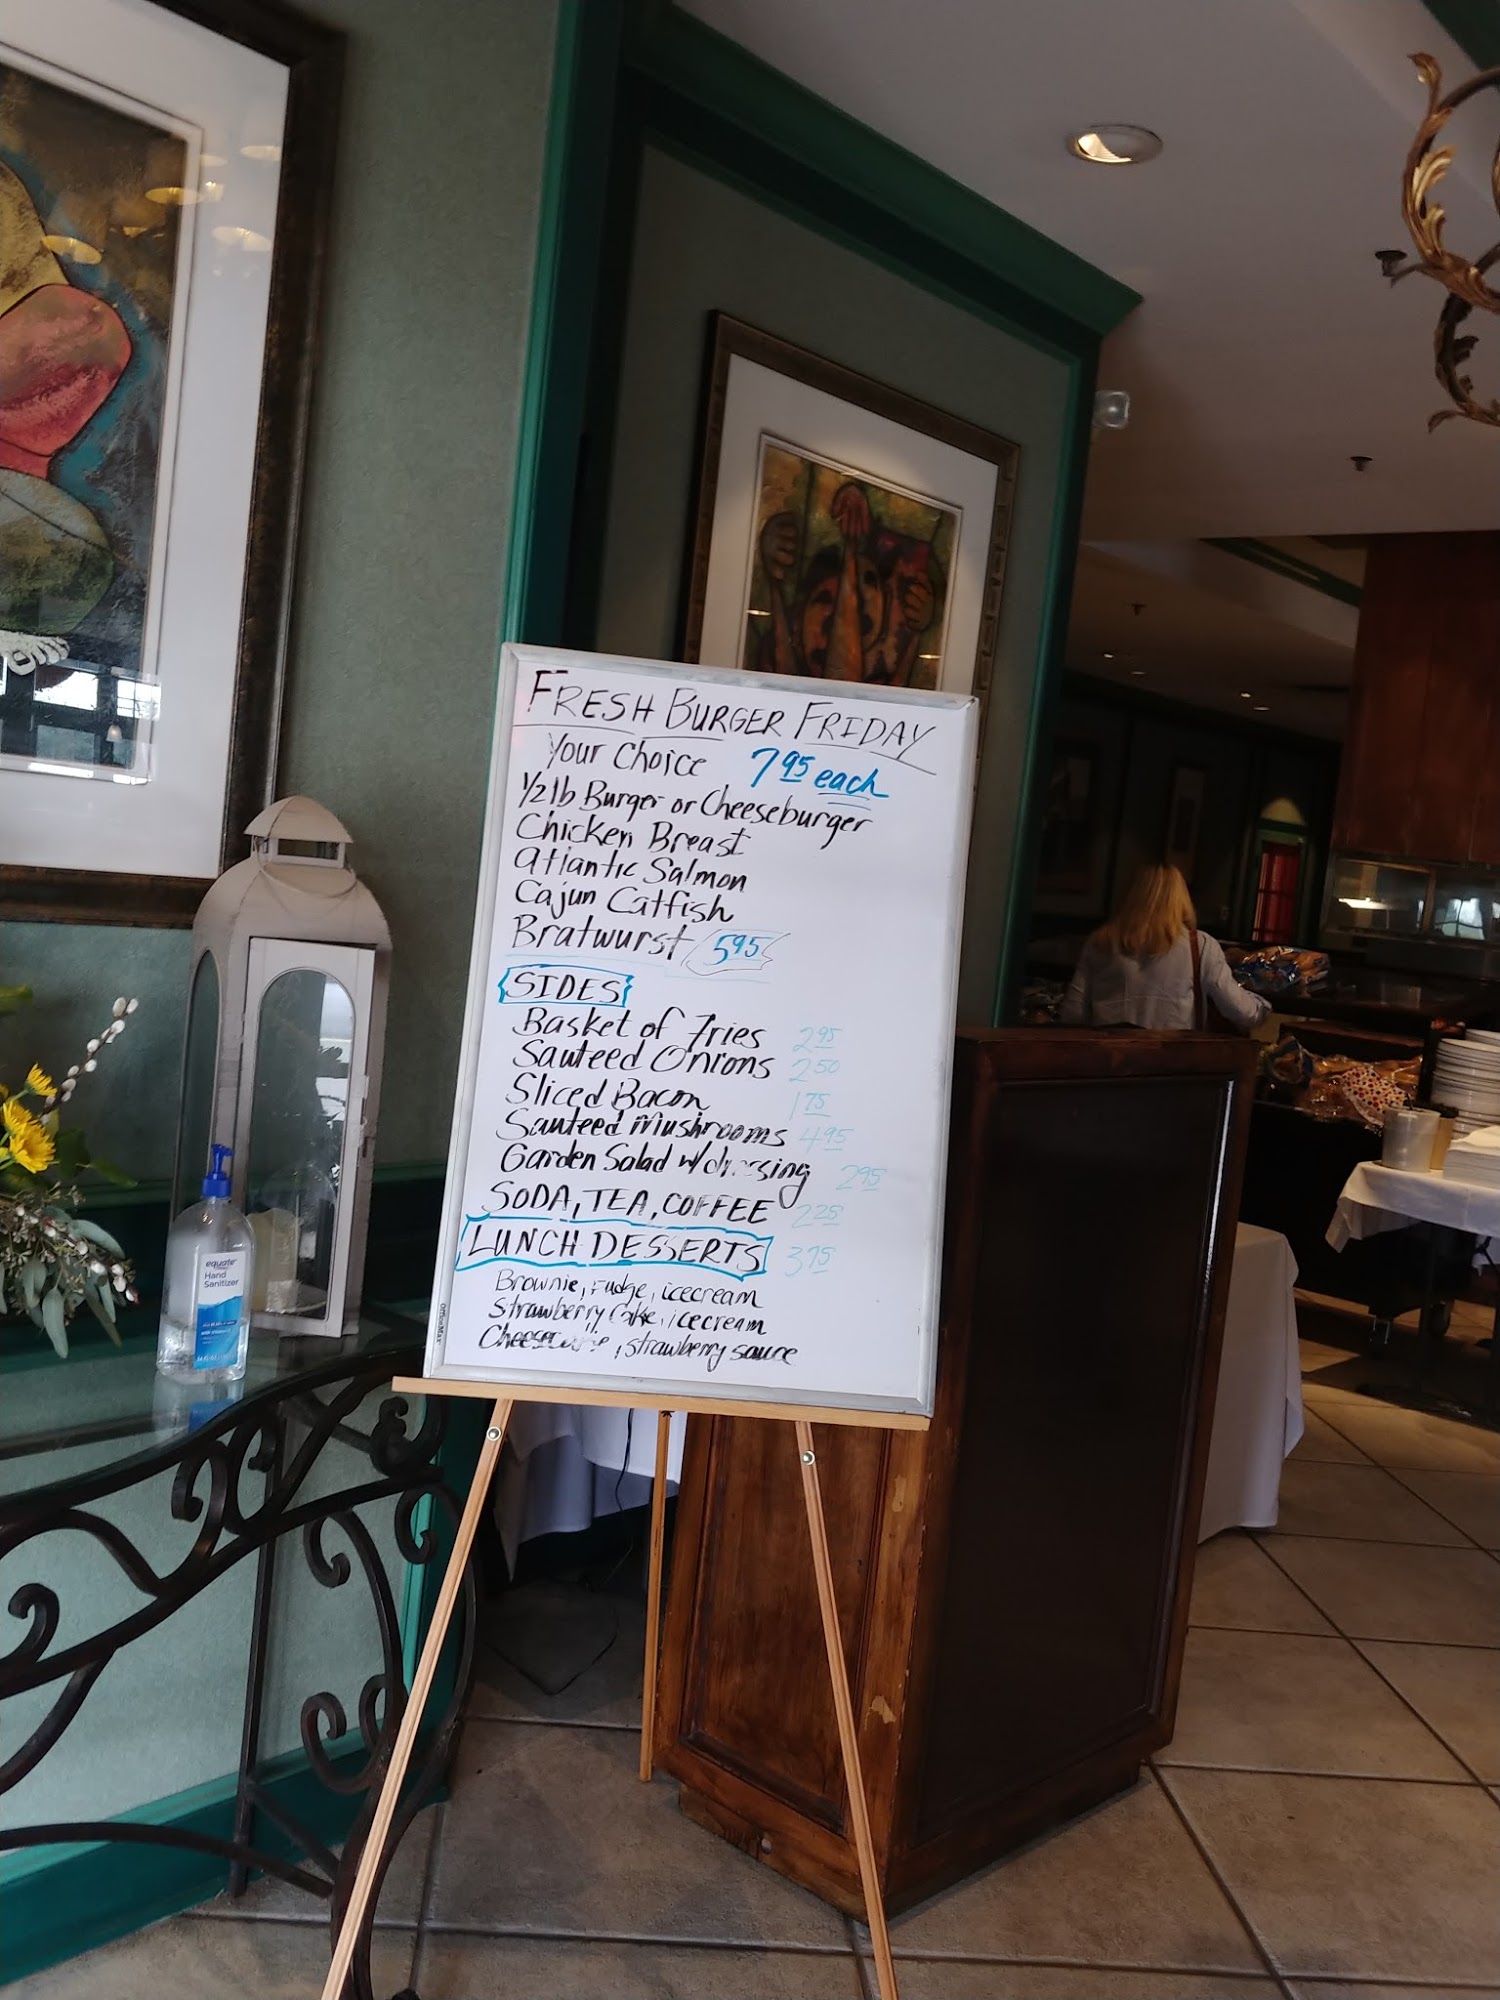 FRESH BURGER FRIDAY
Your Choice 7 95 each
1/2 lb Burger or Cheeseburger
Chicken Breast
Atlantic Salmon
Cajun Catfish
Bratwurst 5 95
SIDES
Basket of Fries 2 95
Sauteed Onions 2 50
Sliced Bacon 1 75
Sauteed Mushrooms 4 95
Garden Salad w/dressing 2 95
SODA, TEA, COFFEE 2 25
LUNCH DESSERTS 3 75
Brownie, Fudge, icecream
Strawberry Cake, icecream
Cheesecake, strawberry sauce
OfficeMax
equate
Hand
Sanitizer